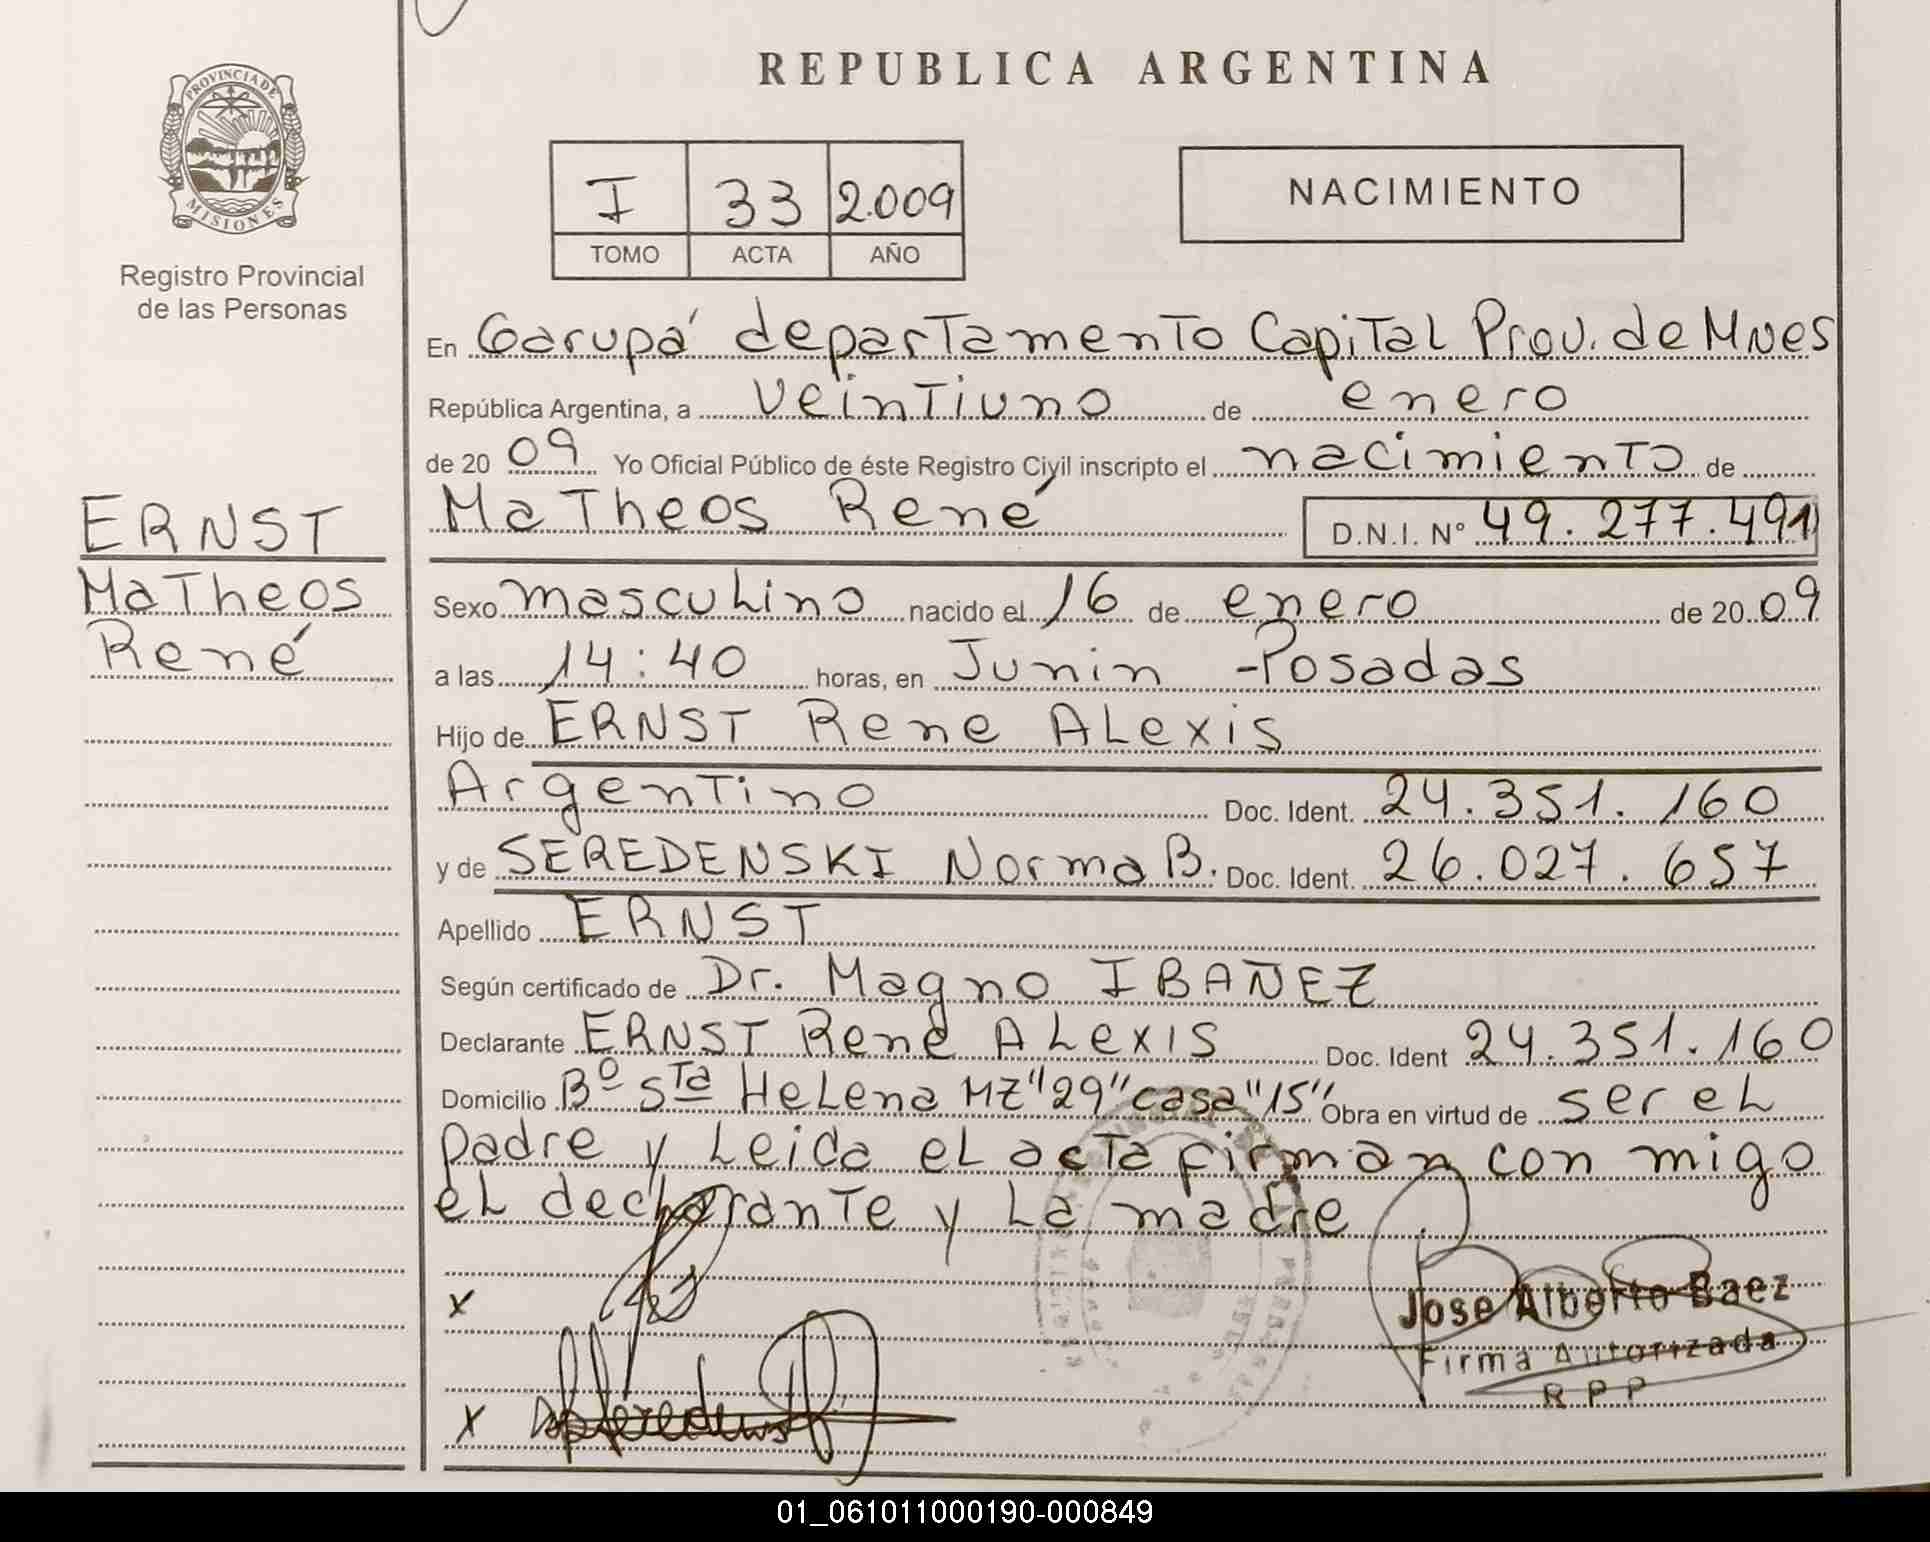 REPUBLICA ARGENTINA
PROVINCIA DE
MISIONES
Registro Provincial
de las Personas
I 33 2.009
TOMO ACTA AÑO
NACIMIENTO
En Garupá departamento Capital Prov. de Mnes
República Argentina, a veintiuno de enero
de 20 09 Yo Oficial Público de éste Registro Civil inscripto el nacimiento de
Matheos René D.N.I. Nº 49.277.491
ERNST
Matheos
René
Sexo masculino nacido el 16 de enero de 20 09
a las 14:40 horas, en Junin - Posadas
Hijo de ERNST Rene Alexis
Argentino Doc. Ident. 24.351.160
y de SEREDENSKI Norma B. Doc. Ident. 26.027.657
Apellido ERNST
Según certificado de Dr. Magno IBAÑEZ
Declarante ERNST René Alexis Doc. Ident 24.351.160
Domicilio Bº Sta Helena MZ "29" casa "15" Obra en virtud de ser el
padre y leida el acta firman con migo
el declarante y la madre
x
x
Jose Alberto Baez
Firma Autorizada
R P P
01_061011000190-000849